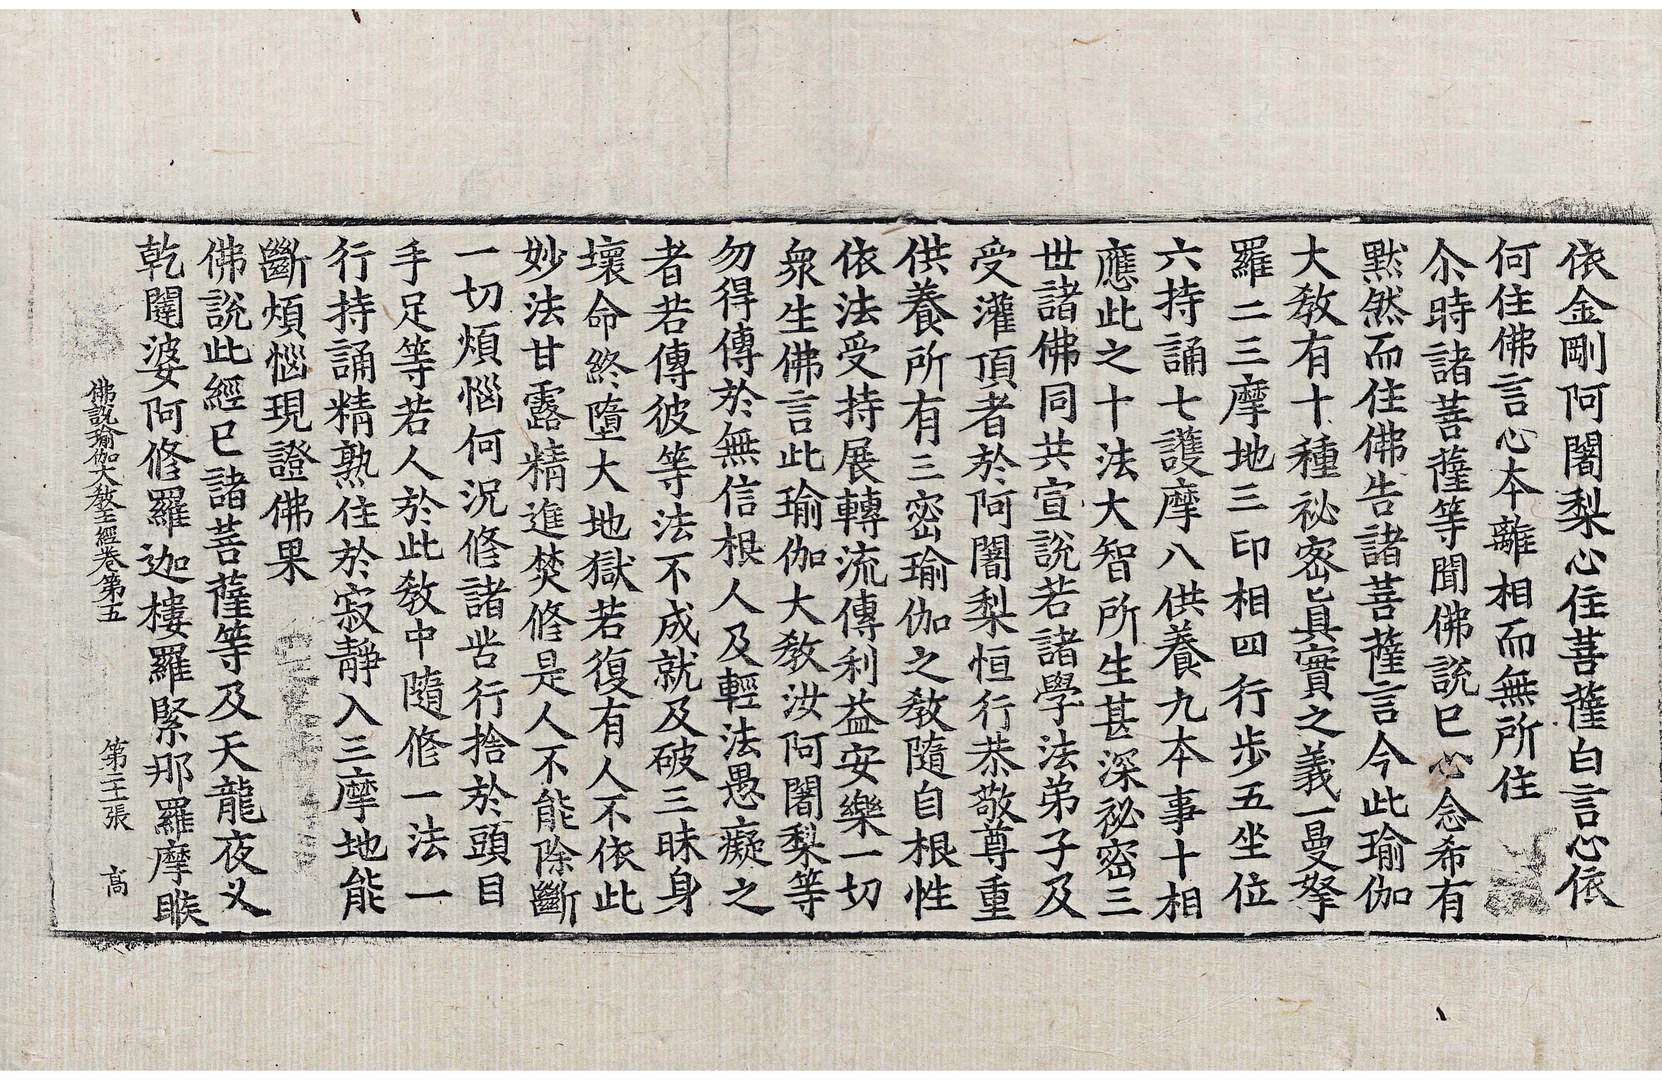 依金剛阿闍梨心住菩薩白言心依
何住佛言心本離相而無所住
尒時諸菩薩等聞佛說已心念希有
默然而住佛告諸菩薩言今此瑜伽
大教有十種祕密眞實之義一曼拏
羅二三摩地三印相四行步五坐位
六持誦七護摩八供養九本事十相
應此之十法大智所生甚深祕密三
世諸佛同共宣說若諸學法弟子及
受灌頂者於阿闍梨恒行恭敬尊重
供養所有三密瑜伽之教隨自根性
依法受持展轉流傳利益安樂一切
衆生佛言此瑜伽大教汝阿闍梨等
勿得傳於無信根人及輕法愚癡之
者若傳彼等法不成就及破三昧身
壞命終墮大地獄若復有人不依此
妙法甘露精進焚修是人不能除斷
一切煩惱何況修諸呰行捨於頭目
手足等若人於此教中隨修一法一
行持誦精熟住於寂靜入三摩地能
斷煩惱現證佛果
佛說此經已諸菩薩等及天龍夜叉
乾闥婆阿修羅迦樓羅緊那羅摩睺
佛說瑜伽大教王經卷第五 第二十張 高